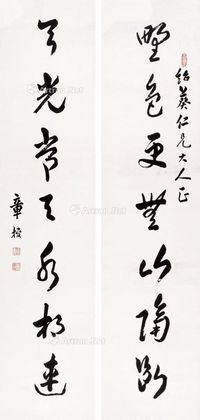 紹葵仁兄大人正
野色更無山隔斷
天光常与水相連
章梫